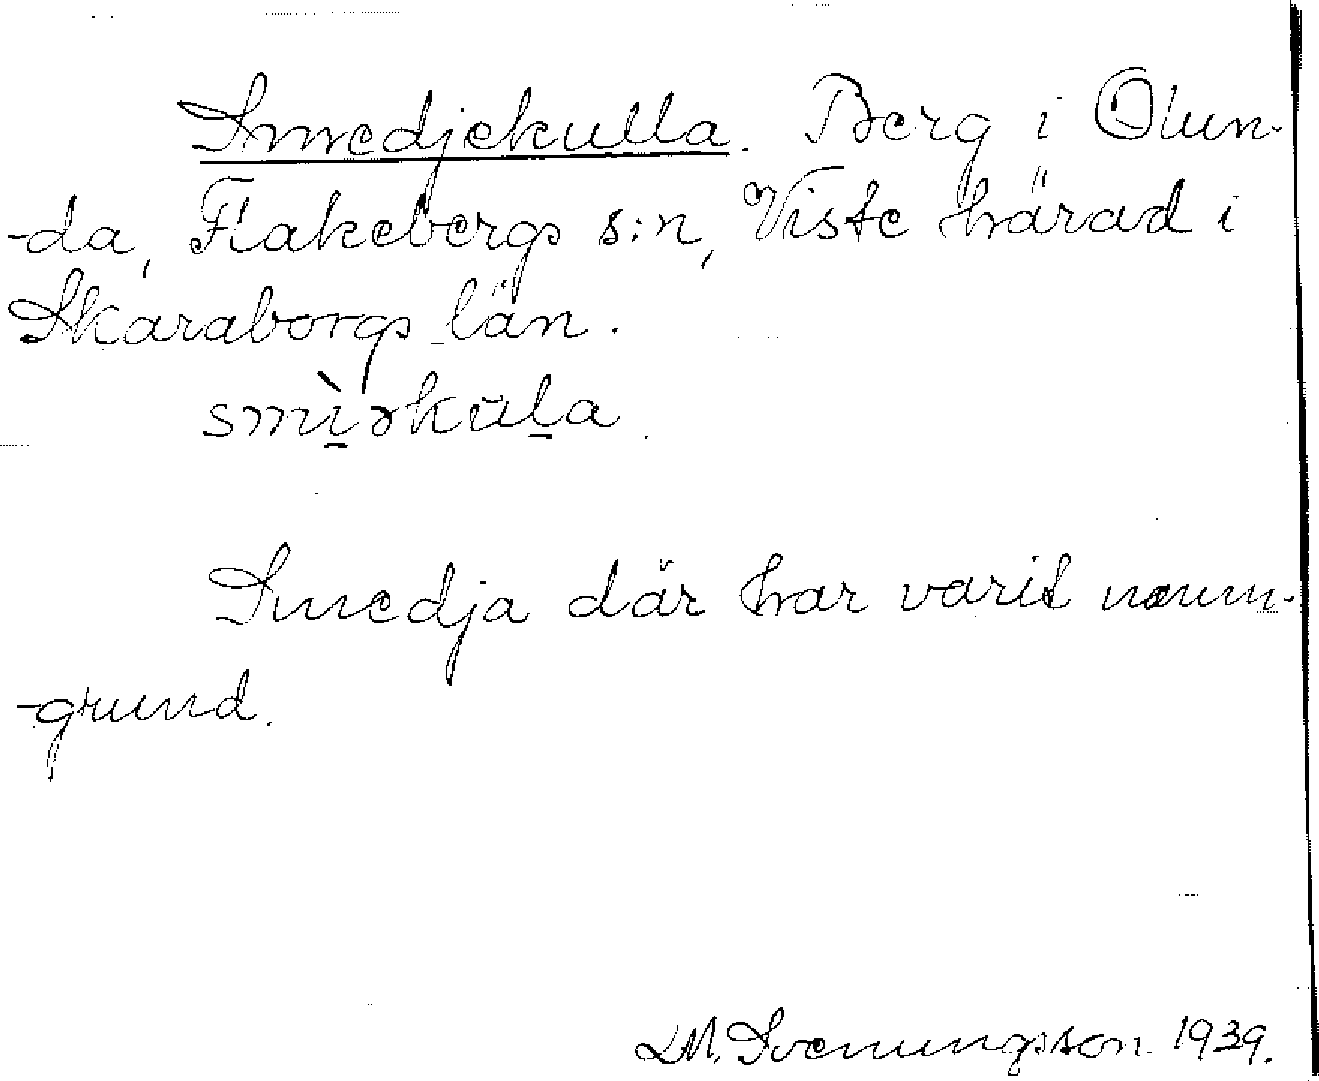 Smedjekulla. Berg i Olun-
-da, Flakebergs s:n, Viste härad i
Skaraborgs län.
smìrkùla.
Smedja där har varit namn-
-grund.
L.M. Svenungsson 1939.